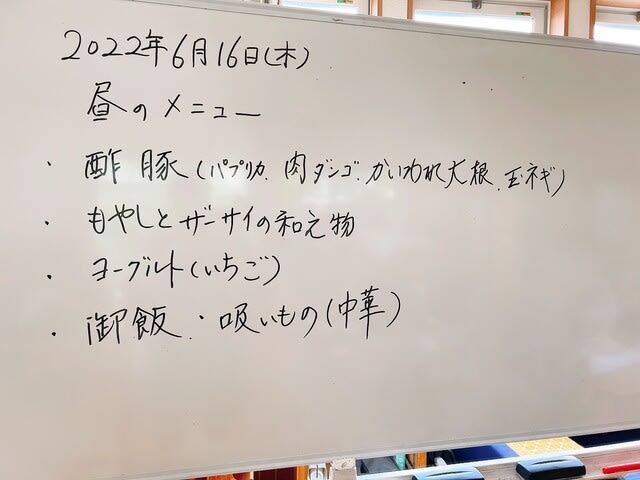 2022年6月16日(木)
昼のメニュー
・酢豚(パプリカ、肉ダンゴ、かいわれ大根、玉ネギ)
・もやしとザーサイの和え物
・ヨーグルト(いちご)
・御飯・吸いもの(中華)